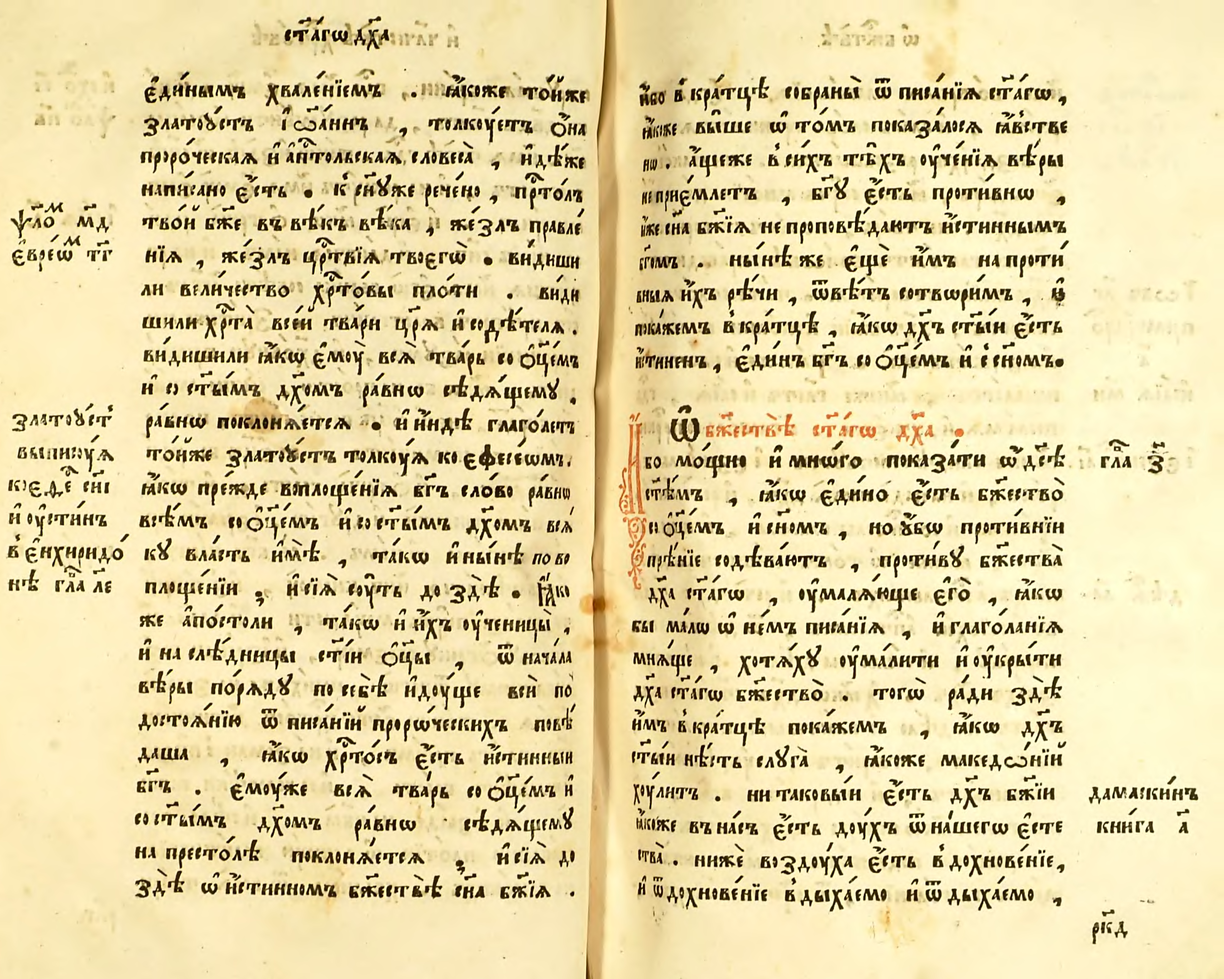 ст҃а́гѡ дх҃а
є҆ди́нымъ хвале́нїемъ . ꙗ҆́коже то́йже
златоꙋ́стъ і҆ѡа́ннъ , толкꙋ́етъ ѻ҆́на
проро́ческаѧ и҆ а҆пⷭ҇тольскаѧ словеса̀ , и҆дѣ́же
написано є҆́сть . к сн҃ꙋже речено̀ , прⷭ҇то́лъ
ѱло́м м҃д
тво́й бж҃е въ вѣ́къ вѣ́ка , же́злъ правле́
є҆вре́ѡм
нїѧ , же́злъ црⷭ҇твїѧ твоегѡ̀ . ви́диши
ли вели́чество хрⷭ҇то́вы пло́ти . види
шили хрⷭ҇та̀ все́й тва́ри цр҃ѧ̀ и҆ содѣ́телѧ .
ви́дишили ꙗ҆́кѡ є҆мꙋ̀ всѧ̀ тва́рь со ѻ҆ц҃е́мъ
и҆ со ст҃ы́мъ дх҃омъ ра́внѡ сѣдѧ́щемꙋ ,
златоꙋ́ст
ра́внѡ поклонѧ́етсѧ . и҆ и҆ндѣ̀ глаго́летъ
выписꙋ́ѧ
то́йже златоꙋ́стъ толкꙋ́ѧ ко єфесе́ѡмъ .
ꙗ҆́кѡ прежде воплоще́нїѧ бг҃ъ сло́во ра́внѡ
и҆ ѹ҆́стинъ
всѣ́мъ со ѻ҆ц҃е́мъ и҆ со ст҃ы́мъ дх҃омъ всѧ́
в є҆нхиридо́
кꙋ вла́сть и҆мѣ̀ , та́кѡ и҆ ны́нѣ по во
нѣ гл҃а ле
площе́нїи , и҆ сїѧ̀ сꙋ́ть до здѣ̀ . ꙗ҆́ко
же а҆по́столи , та́кѡ и҆ и҆́хъ ѹ҆ченицы̀ ,
и҆ на слѣ́дницы ст҃і́и ѻ҆ц҃ы̀ , ѿ нача́ла
вѣ́ры по́рѧдꙋ по себѣ̀ и҆дꙋ́ще всѝ по
достоѧ́нїю ѿ писа́нїй проро́ческихъ повѣ́
даша , ꙗ҆́кѡ хрⷭ҇то́съ є҆́сть и҆́стинныи
бг҃ъ . є҆мꙋ́же всѧ̀ тва́рь со ѻ҆ц҃е́мъ и҆
со ст҃ы́мъ дх҃омъ ра́внѡ сѣдѧ́щемꙋ
на престо́лѣ поклонѧ́етсѧ , и҆ сїѧ̀ до
здѣ̀ ѡ҆ и҆́стинномъ бж҃ествѣ̀ сн҃а бж҃їѧ .
и҆́бо в кра́тцѣ собраны̀ ѿ писа́нїѧ ст҃а́гѡ ,
ꙗ҆́коже вы́ше ѡ҆ то́мъ показа́лосѧ ꙗ҆́встве
нѡ . а҆́щеже в си́хъ тѣ́хъ ѹ҆че́нїѧ вѣ́ры
не прїе́млетъ , бг҃ꙋ є҆́сть проти́внѡ ,
и҆́же сн҃а бж҃їѧ не проповѣ́даютъ и҆́стиннымъ
бг҃омъ . ны́нѣ же є҆щѐ и҆̀мъ на проти
вныѧ и҆́хъ рѣ́чи , ѿвѣ́тъ сотвѡри́мъ , и҆
пока́жемъ в кра́тцѣ , ꙗ҆́кѡ дх҃ъ ст҃ы́и є҆́сть
и҆́стиненъ , є҆ди́нъ бг҃ъ со ѻ҆ц҃е́мъ и҆ с сн҃омъ .
Ѡ҆ бж҃ествѣ̀ ст҃а́гѡ дх҃а .
И҆бо мо́щно и҆ мнѡ́го показа́ти ѡ҆ дс҃ѣ гл҃а ѕ҃
ст҃ѣ́мъ , ꙗ҆́кѡ є҆ди́но є҆́сть бж҃ество̀
со ѻ҆ц҃е́мъ и҆ сн҃омъ , но ѹ҆́бѡ проти́внїи
прѣ́нїе содѣва́ютъ , проти́вꙋ бж҃ества̀
дх҃а ст҃а́гѡ , ѹ҆малѧ́юще є҆го̀ , ꙗ҆́кѡ
бы ма́лѡ ѡ҆ не́мъ писа́нїѧ , и҆ глаго́ланїѧ
мнѧ́ще , хотѧ́хꙋ ѹ҆мали́ти и҆ ѹ҆кры́ти
дх҃а ст҃а́гѡ бж҃ество̀ . тогѡ̀ ра́ди здѣ̀
и҆́мъ в кра́тцѣ пока́жемъ , ꙗ҆́кѡ дх҃ъ
ст҃ы́и нѣ́сть слꙋга̀ , ꙗ҆́коже македѡ́нїй
хꙋ́литъ . ни таковы́и є҆́сть дх҃ъ бж҃їи дамаски́нъ
ꙗ҆́коже въ на́съ є҆́сть дꙋ́хъ ѿ на́шегѡ є҆сте кни́га а҃
ства̀ . нижѐ во́здꙋха є҆́сть вдохнове́нїе ,
и҆ ѿдохнове́нїе вдыха́емо и҆ ѿдыха́емо ,
рк҃д